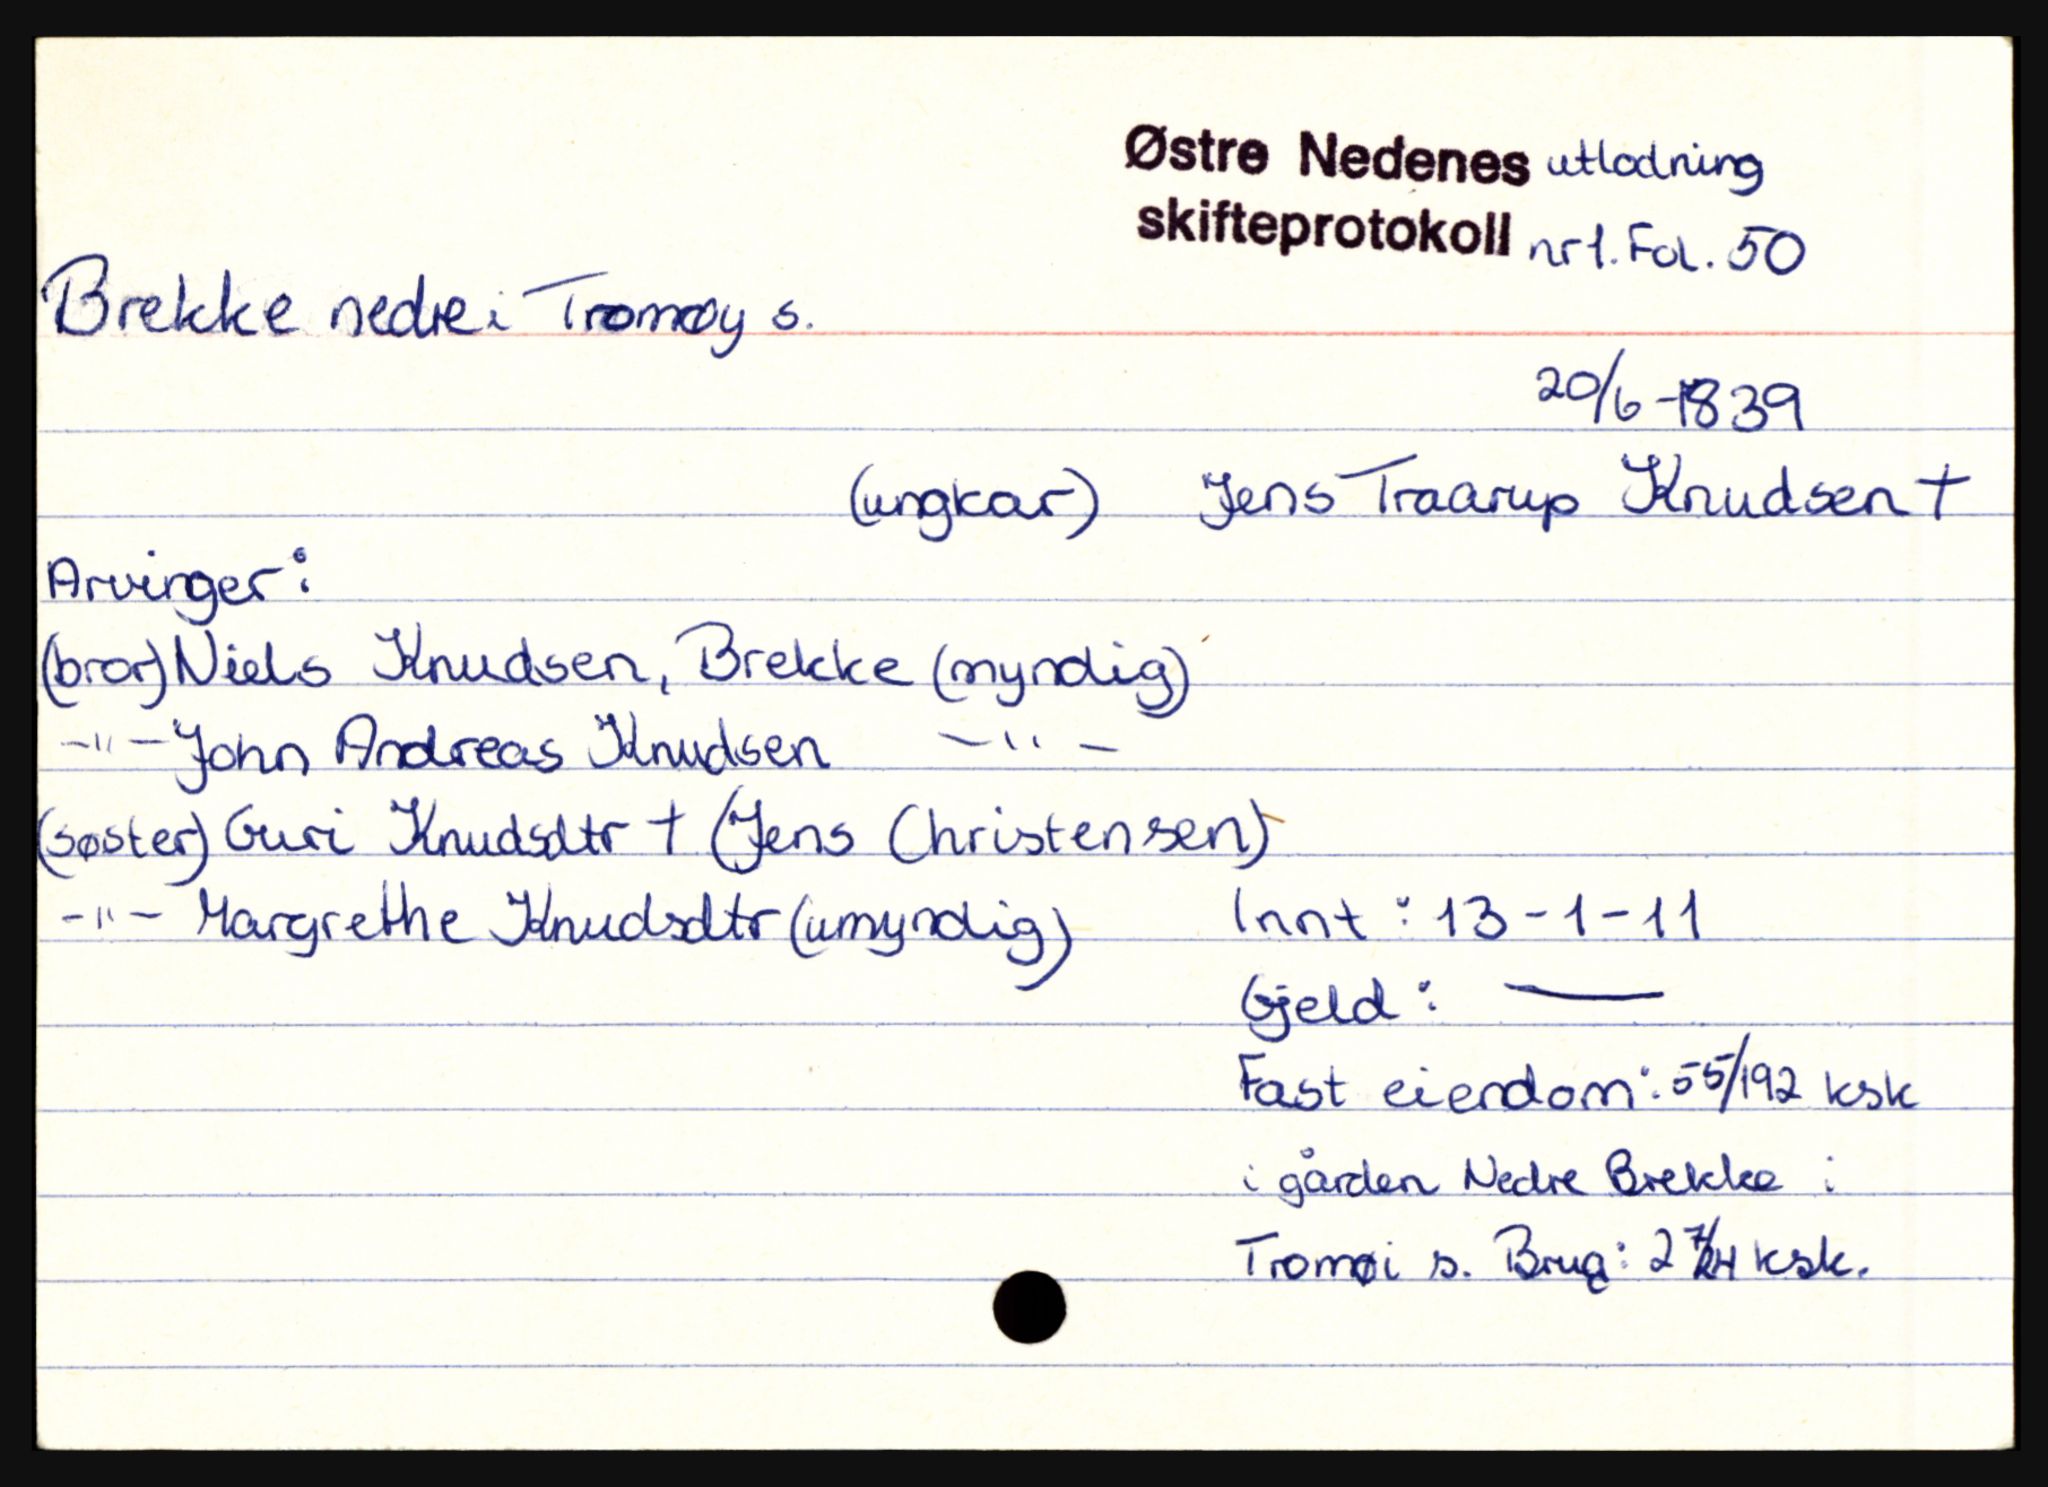 Østre Nedenes utlodning
skifteprotokoll nr 1. Fol. 50
Brekke nedre i Tromøy s.
20/6-1839
(ungkar) Jens Traarup Knudsen †
Arvinger:
(bror) Niels Knudsen, Brekke (myndig)
-"- John Andreas Knudsen -"-
(søster) Guri Knudsdtr † (Jens Christensen)
-"- Margrethe Knudsdtr (umyndig) Innt: 13-1-11
Gjeld: —
Fast eiendom: 55/192 ksk
i gården Nedre Brekke i
Tromøi s. Brug: 2 7/24 ksk.